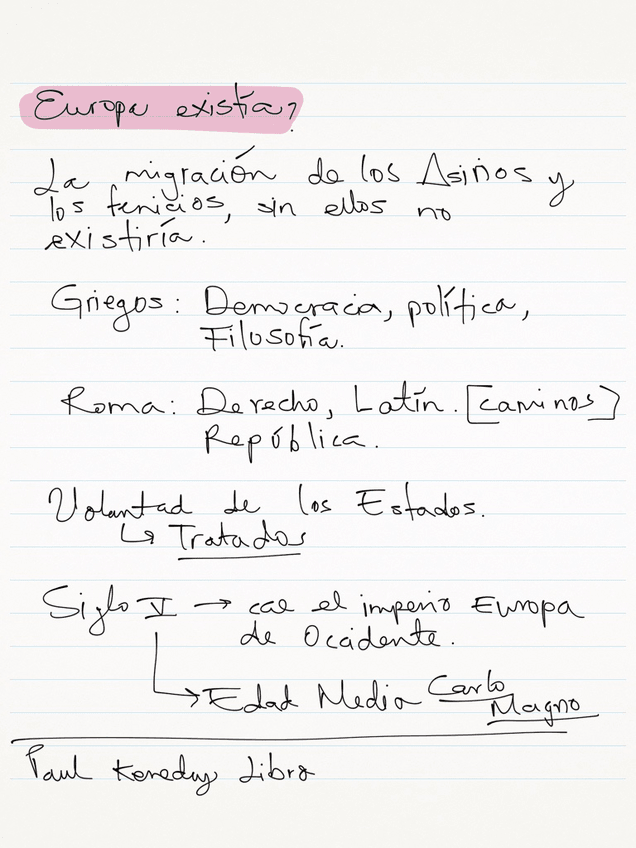 Europa existía?
La migración de los Asirios y
los fenicios, sin ellos no
existiría.
Griegos: Democracia, política,
Filosofía.
Roma: Derecho, Latín. [caminos]
República.
Voluntad de los Estados.
↳ Tratados
Siglo V → cae el imperio Europa
de Occidente.
→ Edad Media Carlo
Magno
Paul Kenedy Libro